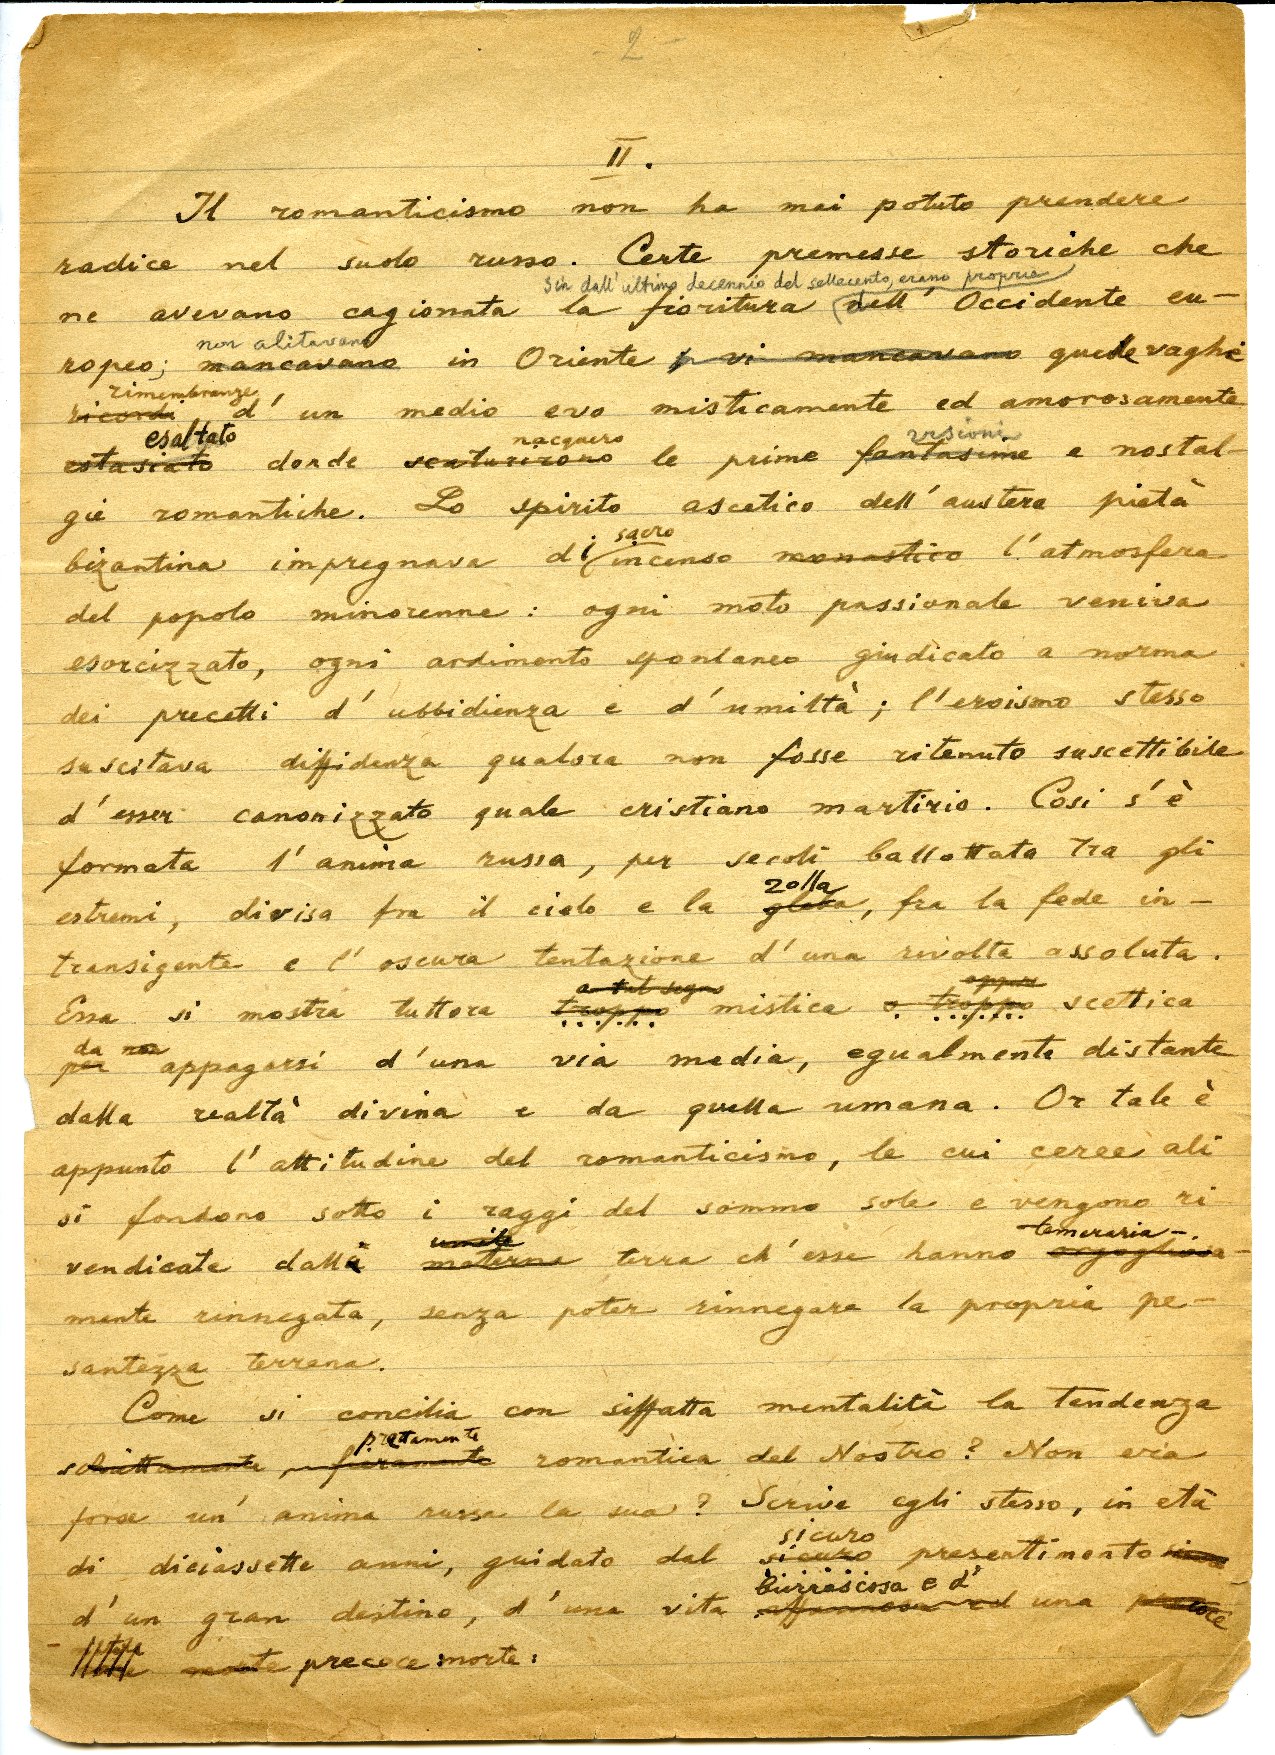 - 2 -
II.
Il romanticismo non ha mai potuto prendere
radice nel suolo russo. Certe premesse storiche che
sin dall'ultimo decennio del settecento, erano proprie
ne avevano cagionata la fioritura nell' Occidente eu-
non alitavano
ropeo; mancavano in Oriente vi mancavano quelle vaghe
rimembranze
ricordi d'un medio evo misticamente ed amorosamente
esaltato nacquero visioni
estasiato donde scaturirono le prime fantasime e nostal-
gie romantiche. Lo spirito ascetico dell'austera pietà
sacro
bizantina impregnava di incenso monastico l'atmosfera
del popolo minorenne: ogni moto passionale veniva
esorcizzato, ogni ardimento spontaneo giudicato a norma
dei precetti d'ubbidienza e d'umiltà; l'eroismo stesso
suscitava diffidenza qualora non fosse ritenuto suscettibile
d'esser canonizzato quale cristiano martirio. Così s'è
formata l'anima russa, per secoli ballottata tra gli
zolla
estremi, divisa fra il cielo e la gleba, fra la fede in-
transigente e l'oscura tentazione d'una rivolta assoluta.
a tal segno oppure
Essa si mostra tuttora troppo mistica o troppo scettica
da non
per appagarsi d'una via media, egualmente distante
dalla realtà divina e da quella umana. Or tale è
appunto l'attitudine del romanticismo, le cui ceree ali
si fondono sotto i raggi del sommo sole e vengono ri
umile temeraria-
vendicate dalla materna terra ch'esse hanno orgogliosa-
mente rinnegata, senza poter rinnegare la propria pe-
santezza terrena.
Come si concilia con siffatta mentalità la tendenza
prettamente
schiettamente, fieramente romantica del Nostro? Non era
forse un' anima russa la sua? Scrive egli stesso, in età
sicuro
di diciassette anni, guidato dal sicuro presentimento
burrascosa e d'
d'un gran destino, d'una vita affannosa ed una precoce
morte precoce morte: